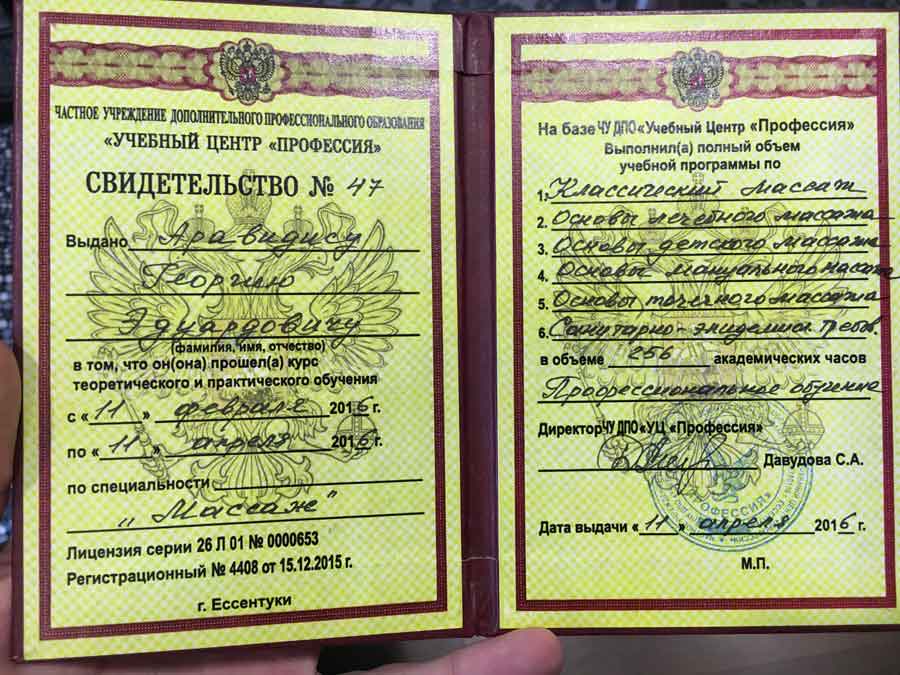 ЧАСТНОЕ УЧРЕЖДЕНИЕ ДОПОЛНИТЕЛЬНОГО ПРОФЕССИОНАЛЬНОГО ОБРАЗОВАНИЯ
«УЧЕБНЫЙ ЦЕНТР «ПРОФЕССИЯ»
СВИДЕТЕЛЬСТВО № 47
Выдано Аравидису
Георгию
Эдуардовичу
(фамилия, имя, отчество)
в том, что он(она) прошел(а) курс
теоретического и практического обучения
с «11» февраля 2016 г.
по «11» апреля 2016 г.
по специальности
"Массаж"
Лицензия серии 26 Л 01 № 0000653
Регистрационный № 4408 от 15.12.2015 г.
г. Ессентуки
На базе ЧУ ДПО «Учебный Центр «Профессия»
Выполнил(а) полный объем
учебной программы по
1. Классический массаж
2. Основы лечебного массажа
3. Основы детского массажа
4. Основы мануального масажа
5. Основы точечного массажа
6. Санитарно-эпидемиол. требов.
в объеме 256 академических часов
Профессиональное обучение
Директор ЧУ ДПО «УЦ «Профессия»
Давудова С.А.
ПРОФЕССИЯ»
Дата выдачи «11» апреля 2016 г.
М.П.